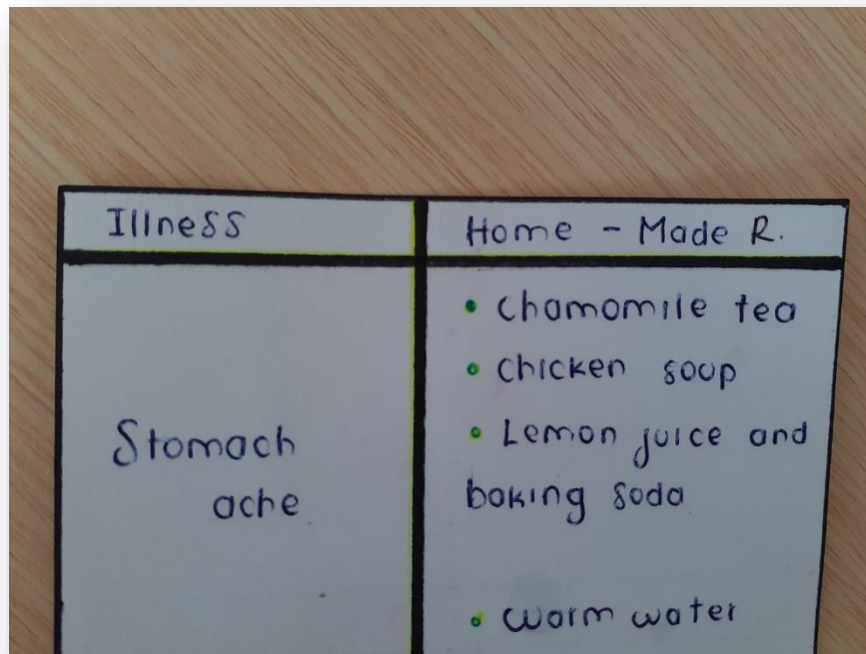 Illness
Home - Made R.
Stomach
ache
• Chamomile tea
• Chicken soup
• Lemon juice and
baking soda
• Warm water